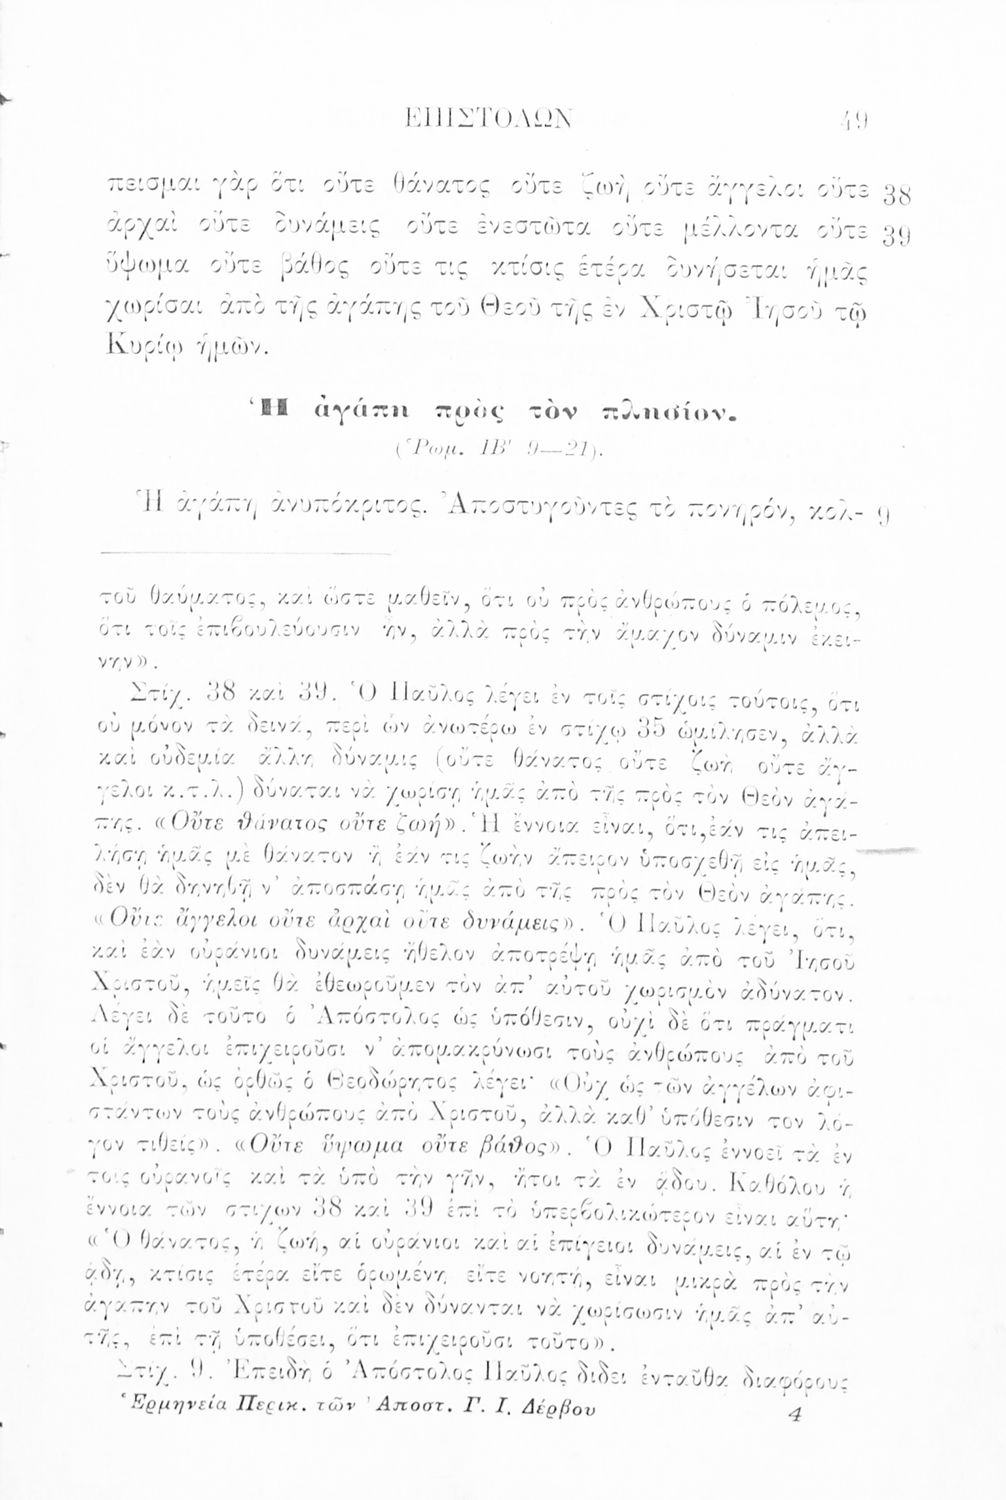 ΕΠΙΣΤΟΛΩΝ 49
πεισμαι γὰρ ὅτι οὔτε θάνατος οὔτε ζωὴ οὔτε ἄγγελοι οὔτε 38
ἀρχαὶ οὔτε δυνάμεις οὔτε ἐνεστῶτα οὔτε μέλλοντα οὔτε 39
ὕψωμα οὔτε βάθος οὔτε τις κτίσις ἑτέρα δυνήσεται ἡμᾶς
χωρίσαι ἀπὸ τῆς ἀγάπης τοῦ Θεοῦ τῆς ἐν Χριστῷ Ἰησοῦ τῷ
Κυρίῳ ἡμῶν.
Ἡ ἀγάπη πρὸς τὸν πλησίον.
(Ῥωμ. ΙΒ' 9—21).
Ἡ ἀγάπη ἀνυπόκριτος. Ἀποστυγοῦντες τὸ πονηρόν, κολ- 9
τοῦ θαύματος, καὶ ὥστε μαθεῖν, ὅτι οὐ πρὸς ἀνθρώπους ὁ πόλεμος,
ὅτι τοῖς ἐπιβουλεύουσιν ἦν, ἀλλὰ πρὸς τὴν ἄμαχον δύναμιν ἐκεί-
νην».
Στίχ. 38 καὶ 39. Ὁ Παῦλος λέγει ἐν τοῖς στίχοις τούτοις, ὅτι
οὐ μόνον τὰ δεινά, περὶ ὧν ἀνωτέρω ἐν στίχῳ 35 ὡμίλησεν, ἀλλὰ
καὶ οὐδεμία ἄλλη δύναμις (οὔτε θάνατος οὔτε ζωὴ οὔτε ἄγ-
γελοι κ.τ.λ.) δύναται νὰ χωρίσῃ ἡμᾶς ἀπὸ τῆς πρὸς τὸν Θεὸν ἀγά-
πης. «Οὔτε θάνατος οὔτε ζωή». Ἡ ἔννοια εἶναι, ὅτι, ἐάν τις ἀπει-
λήσῃ ἡμᾶς μὲ θάνατον ἢ ἐάν τις ζωὴν ἄπειρον ὑποσχεθῇ εἰς ἡμᾶς,
δὲν θὰ δηνηθῇ ν' ἀποσπάσῃ ἡμᾶς ἀπὸ τῆς πρὸς τὸν Θεὸν ἀγάπης.
«Οὔτε ἄγγελοι οὔτε ἀρχαὶ οὔτε δυνάμεις». Ὁ Παῦλος λέγει, ὅτι,
καὶ ἐὰν οὐράνιοι δυνάμεις ἤθελον ἀποτρέψῃ ἡμᾶς ἀπὸ τοῦ Ἰησοῦ
Χριστοῦ, ἡμεῖς θὰ ἐθεωροῦμεν τὸν ἀπ' αὐτοῦ χωρισμὸν ἀδύνατον.
Λέγει δὲ τοῦτο ὁ Ἀπόστολος ὡς ὑπόθεσιν, οὐχὶ δὲ ὅτι πράγματι
οἱ ἄγγελοι ἐπιχειροῦσι ν' ἀπομακρύνωσι τοὺς ἀνθρώπους ἀπὸ τοῦ
Χριστοῦ, ὡς ὀρθῶς ὁ Θεοδώρητος λέγει· «Οὐχ ὡς τῶν ἀγγέλων ἀφι-
στάντων τοὺς ἀνθρώπους ἀπὸ Χριστοῦ, ἀλλὰ καθ' ὑπόθεσιν τον λό-
γον τιθείς». «Οὔτε ὕψωμα οὔτε βάθος». Ὁ Παῦλος ἐννοεῖ τὰ ἐν
τοῖς οὐρανοῖς καὶ τὰ ὑπὸ τὴν γῆν, ἤτοι τὰ ἐν ᾅδου. Καθόλου ἡ
ἔννοια τῶν στίχων 38 καὶ 39 ἐπὶ τὸ ὑπερβολικώτερον εἶναι αὕτη·
«Ὁ θάνατος, ἡ ζωή, αἱ οὐράνιοι καὶ αἱ ἐπίγειοι δυνάμεις, αἱ ἐν τῷ
ᾅδῃ, κτίσις ἑτέρα εἴτε ὁρωμένη εἴτε νοητή, εἶναι μικρὰ πρὸς τὴν
ἀγάπην τοῦ Χριστοῦ καὶ δὲν δύνανται νὰ χωρίσωσιν ἡμᾶς ἀπ' αὐ-
τῆς, ἐπὶ τῇ ὑποθέσει, ὅτι ἐπιχειροῦσι τοῦτο».
Στίχ. 9. Ἐπειδὴ ὁ Ἀπόστολος Παῦλος δίδει ἐνταῦθα διαφόρους
Ἑρμηνεία Περικ. τῶν Ἀποστ. Γ. Ι. Δέρβου 4